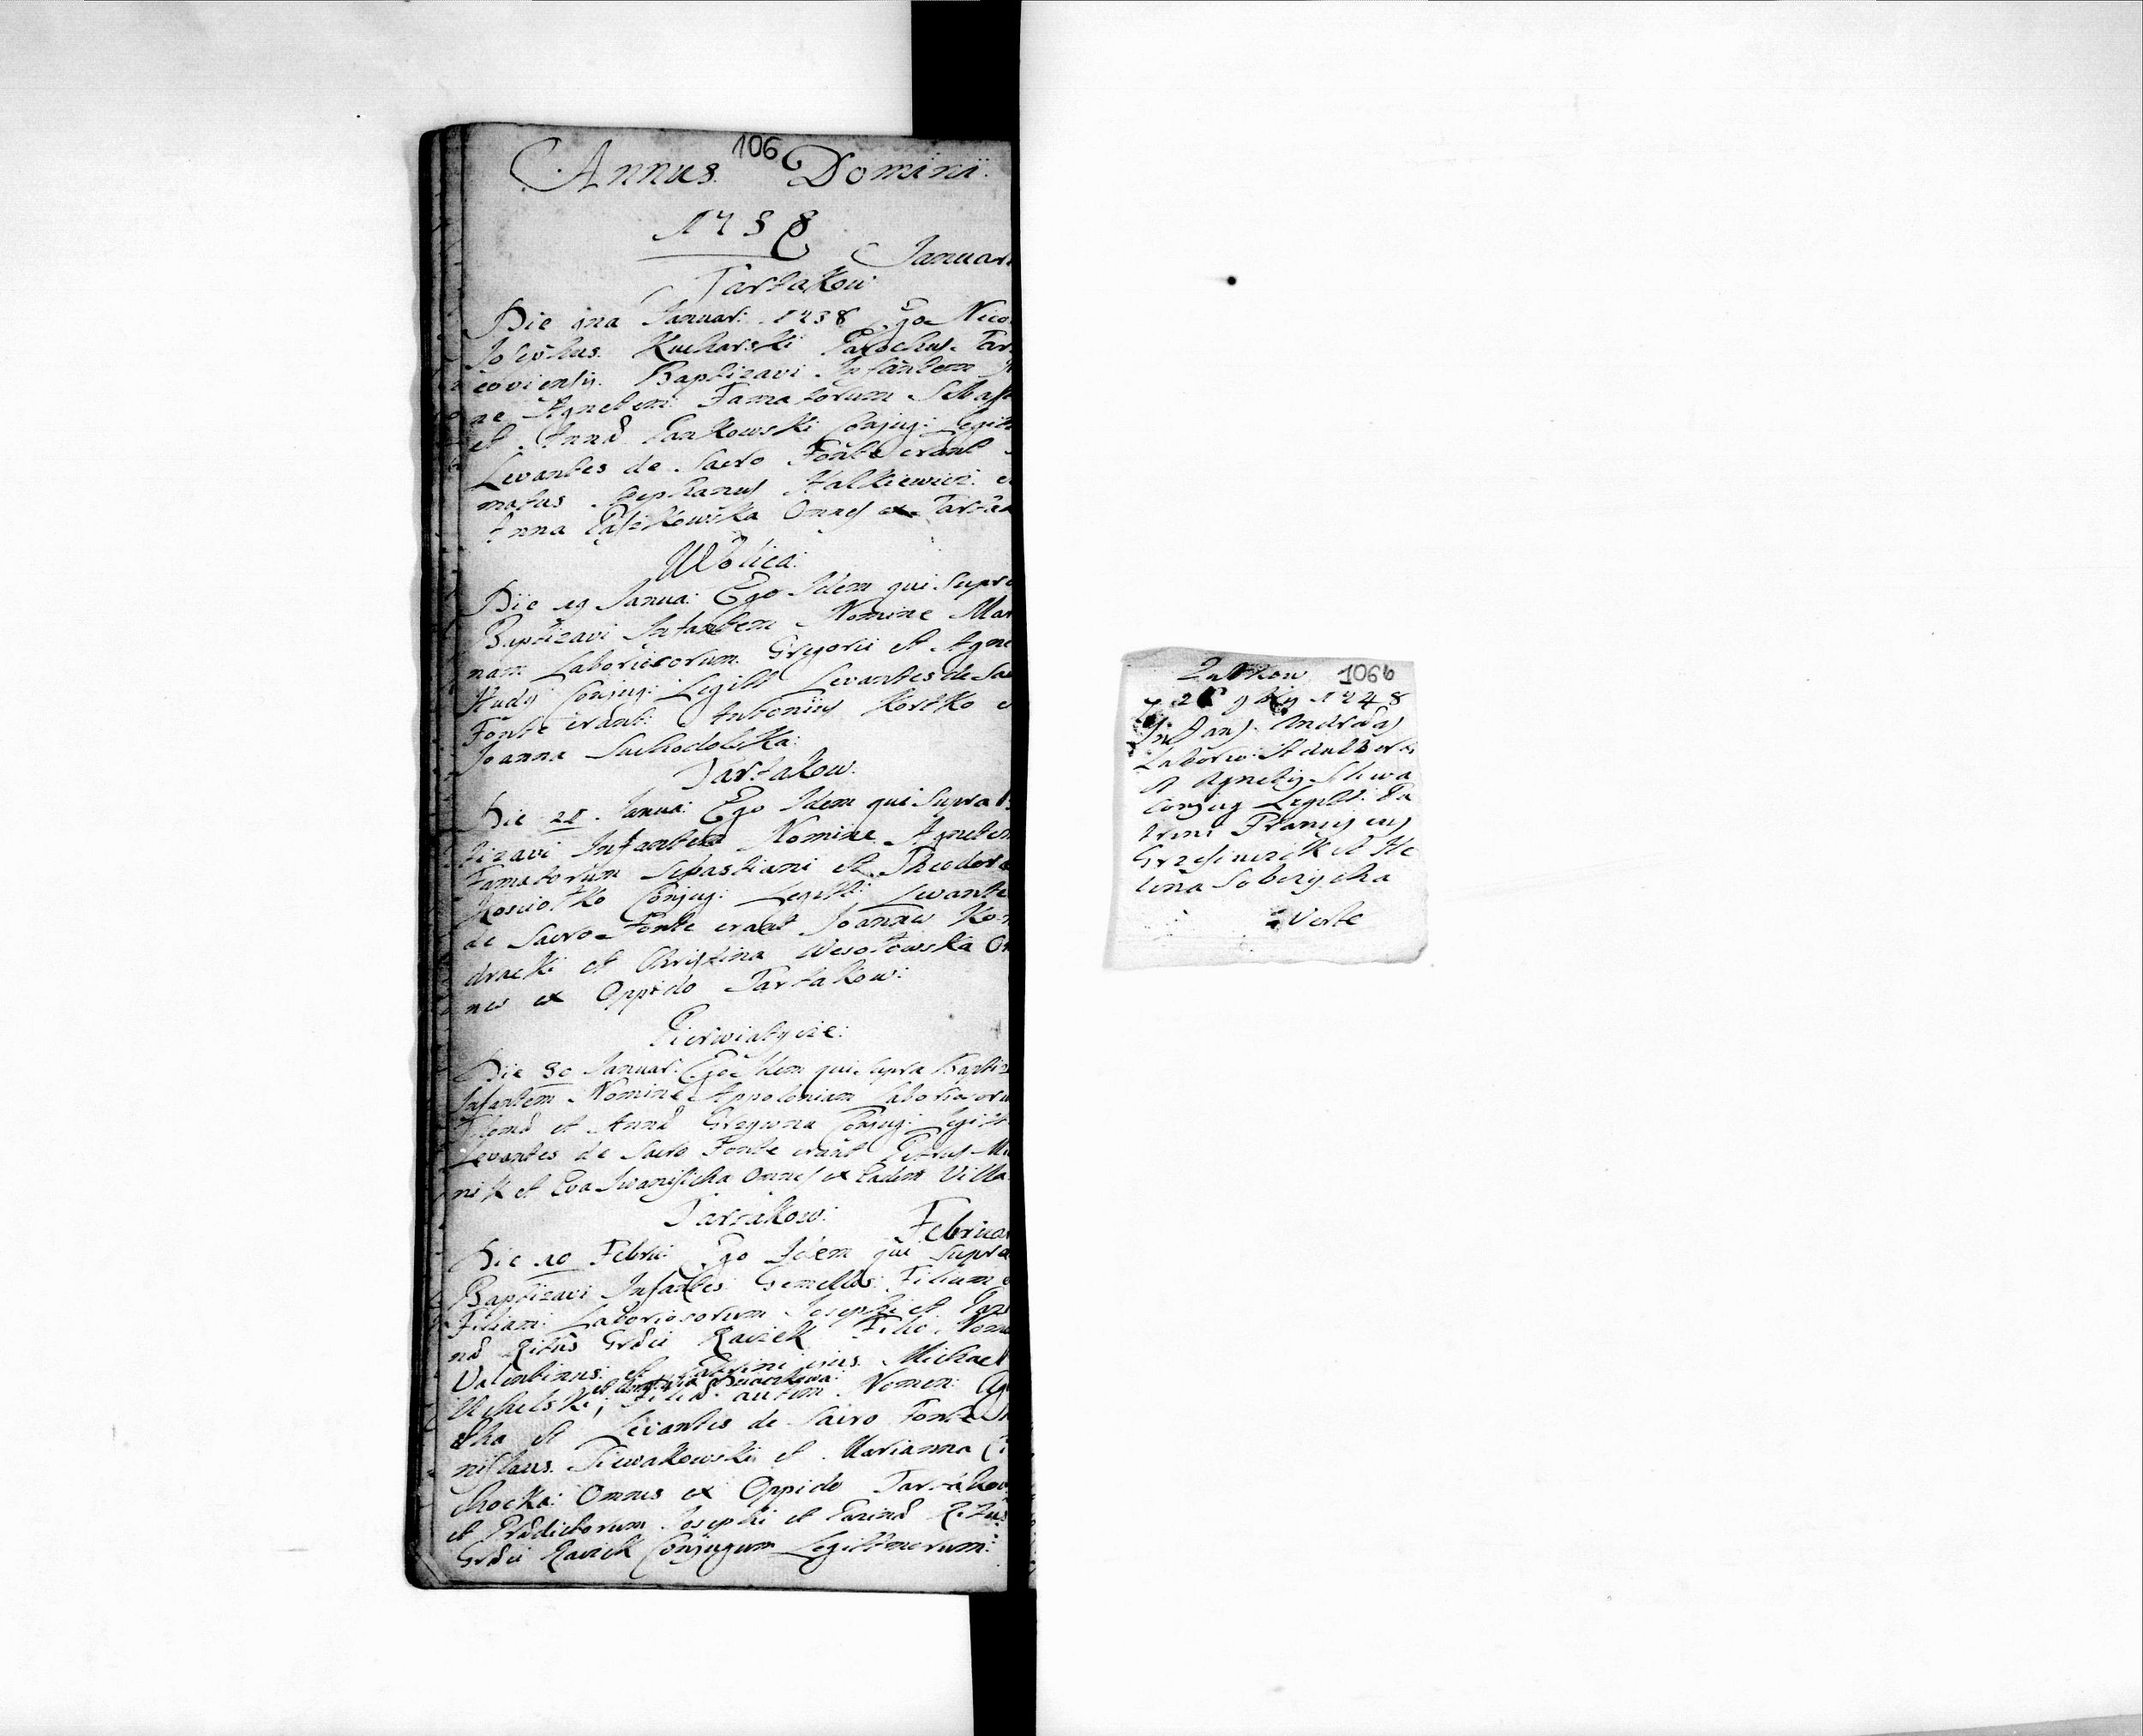 106
Annus Domini
1738
Januar
Tartakow
Die 9na Januar: 1738 Ego Nico
Josephus Kucharski Parochus Tar
coviensis Baptizavi Infantem
ne Agnetem Famatorum Sebast
et Annæ Pankowski Conjug: Legit
Levantes de Sacro Fonte erant
matus Stephanus Halkiewicz e
Anna Paszkowska Omnes ex Tartak
Wolica:
Die 19 Janua: Ego Idem qui Supra
Baptizavi Infantem Nomine Mar
nam Laboriosorum Gregorii et Agne
Hudy Conjug: Legitt Levantes de Sac
Fonte erant: Antonius Kostko e
Joanna Suchodolska:
Tartakow.
Die 21. Janua: Ego Idem qui Supra
tizavi Infantem Nomine Agnetem
Famatorum Sebastiani et Theodora
Kosciotko Conjug: Legitt: Levante
de Sacro Fonte erant Joannes Ko
dracki et Christina Wesołowska Om
nes ex Oppido Tartakow:
Pierwiatycze:
Die 30 Januar: Ego Idem qui supra Baptiz
Infantem Nomine Appoloniam Laboriororu
et Annæ Conjug: Legitt
Levantes de Sacro Fonte erant Petrus
nik et Eva Iwanisicha Omnes ex Eadem Villa
Tartakow:
Februar
Die 10 Febru: Ego Idem qui Supra
Baptizavi Infantes Gemellos: Filium e
Filiam: Laboriosorum Josephi et Par
næ Ritus Græci Ravick Filio Nome
Valentinus: et Patrini ejus Michael
et
Uchelski; Filiæ autem Nomen: Ag
tha et Levantes de Sacro Fonte
nislaus Piewakowski et Marianna Ci
chocka: Omnes ex Oppido Tartakow
et Prædictorum Josephi et Parinæ Ritus
Græci Ravick Conjugum Legittmorum:
1066
1748
Infan: Andræas
Laborio: Adalberti
et Agnetis Sliwa
Conjug Legitt: Pa
trini Franciscus
Grzesiuczik et He
lena Sobczycha
Verte